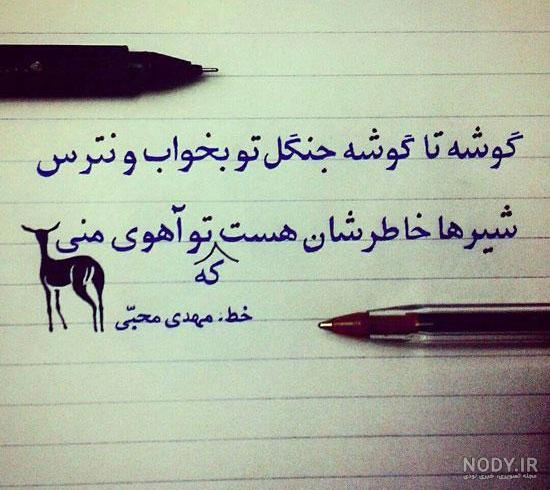 گوشه تا گوشه جنگل تو بخواب و نترس
شیرها خاطرشان هست تو آهوی منی
که
خط. مهدی محبّی
NODY.IR
مجله تصویری، خبری نودی